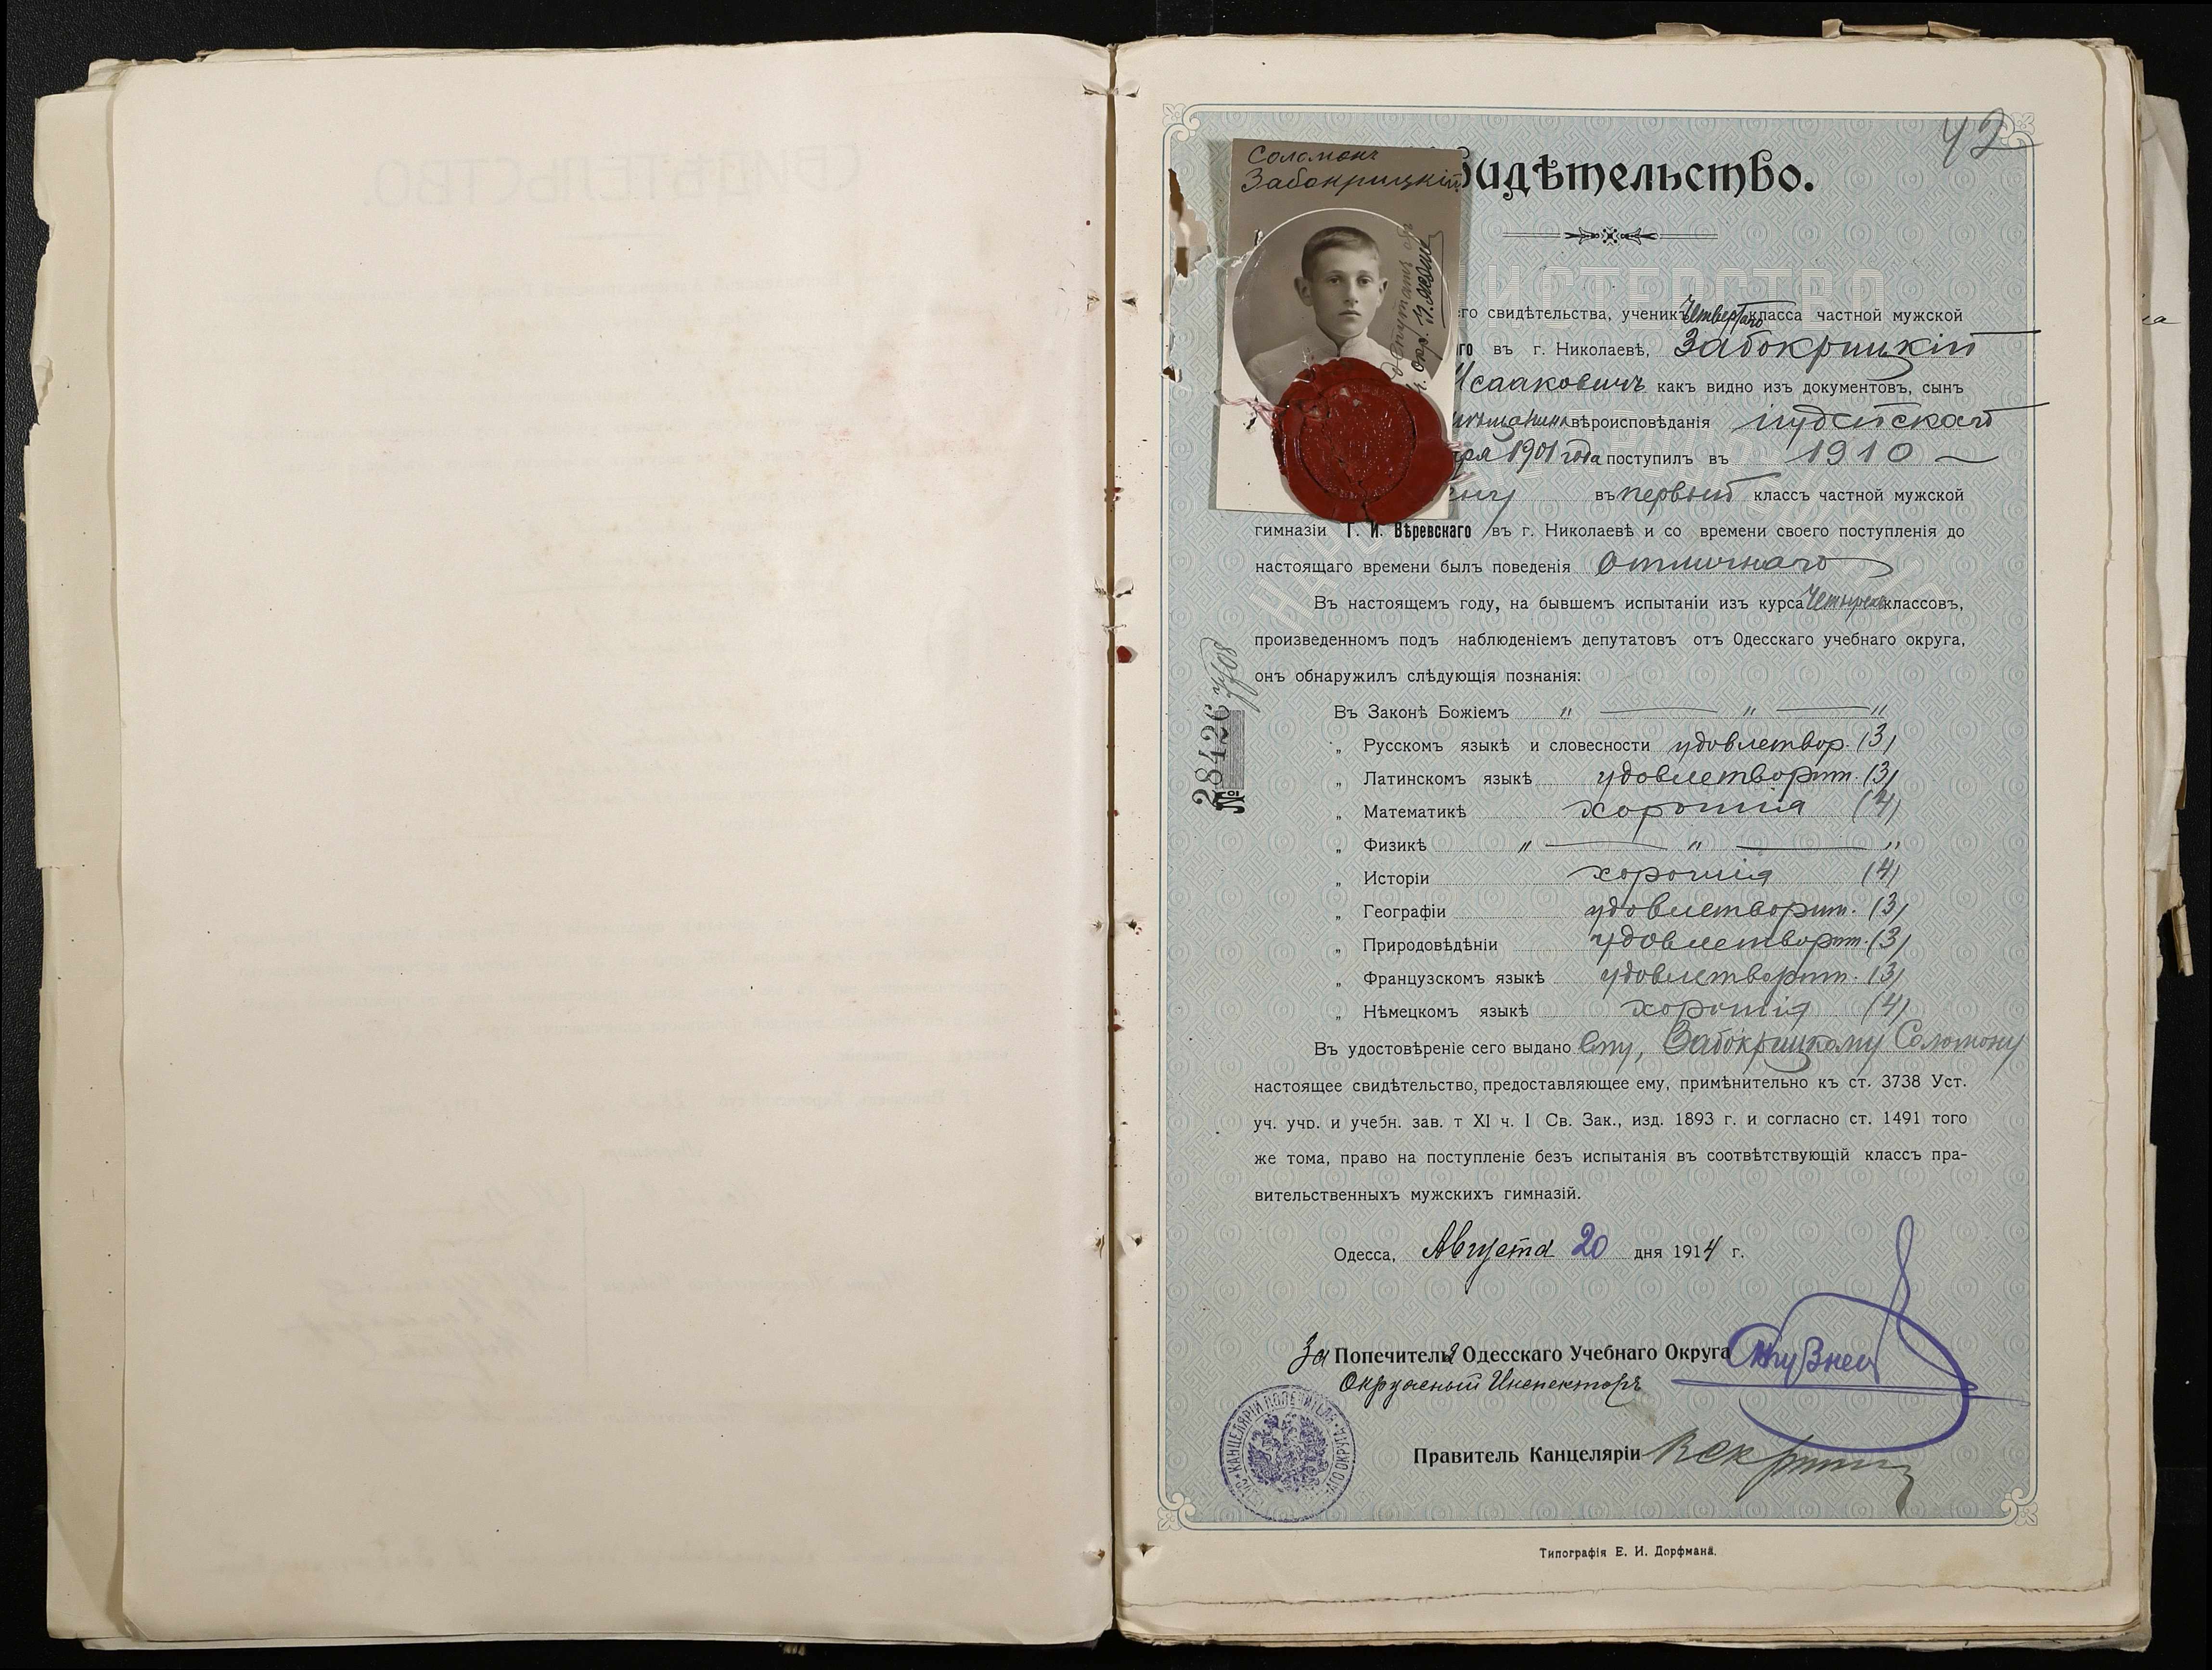 42
Соломонъ
Забокрицкій
видѣтельство.
его свидѣтельства, ученикъ Четвертаго класса частной мужской
го въ г. Николаевѣ, Забокрицкій
Исааковичъ какъ видно изъ документовъ, сынъ
мѣщанина вѣроисповѣданія іудейскаго
ря 1901 года поступилъ въ 1910 —
въ первый классъ частной мужской
гимназіи Г. И. Вѣревскаго въ г. Николаевѣ и со времени своего поступленія до
настоящаго времени былъ поведенія отличнаго
Въ настоящемъ году, на бывшемъ испытаніи изъ курса Четырехъ классовъ,
произведенномъ подъ наблюденіемъ депутатовъ отъ Одесскаго учебнаго округа,
онъ обнаружилъ слѣдующія познанія:
Въ Законѣ Божіемъ " — " — "
„ Русскомъ языкѣ и словесности удовлетвор. (3)
„ Латинскомъ языкѣ удовлетворит. (3)
„ Математикѣ хорошія (4)
„ Физикѣ " — " — "
„ Исторіи хорошія (4)
„ Географіи удовлетворит. (3)
„ Природовѣдѣніи удовлетворит. (3)
„ Французскомъ языкѣ удовлетворит. (3)
„ Нѣмецкомъ языкѣ хорошія (4)
Въ удостовѣреніе сего выдано ему, Забокрицкому Соломону
настоящее свидѣтельство, предоставляющее ему, примѣнительно къ ст. 3738 Уст.
уч. учр. и учебн. зав. т XI ч. I Св. Зак., изд. 1893 г. и согласно ст. 1491 того
же тома, право на поступленіе безъ испытанія въ соотвѣтствующій классъ пра-
вительственныхъ мужскихъ гимназій.
Одесса, Августа 20 дня 1914 г.
За Попечителя Одесскаго Учебнаго Округа
Окружный Инспекторъ
Правитель Канцеляріи
Типографія Е. И. Дорфмана.
№ 28426
КАНЦЕЛЯРІИ ПОПЕЧИТЕЛЯ